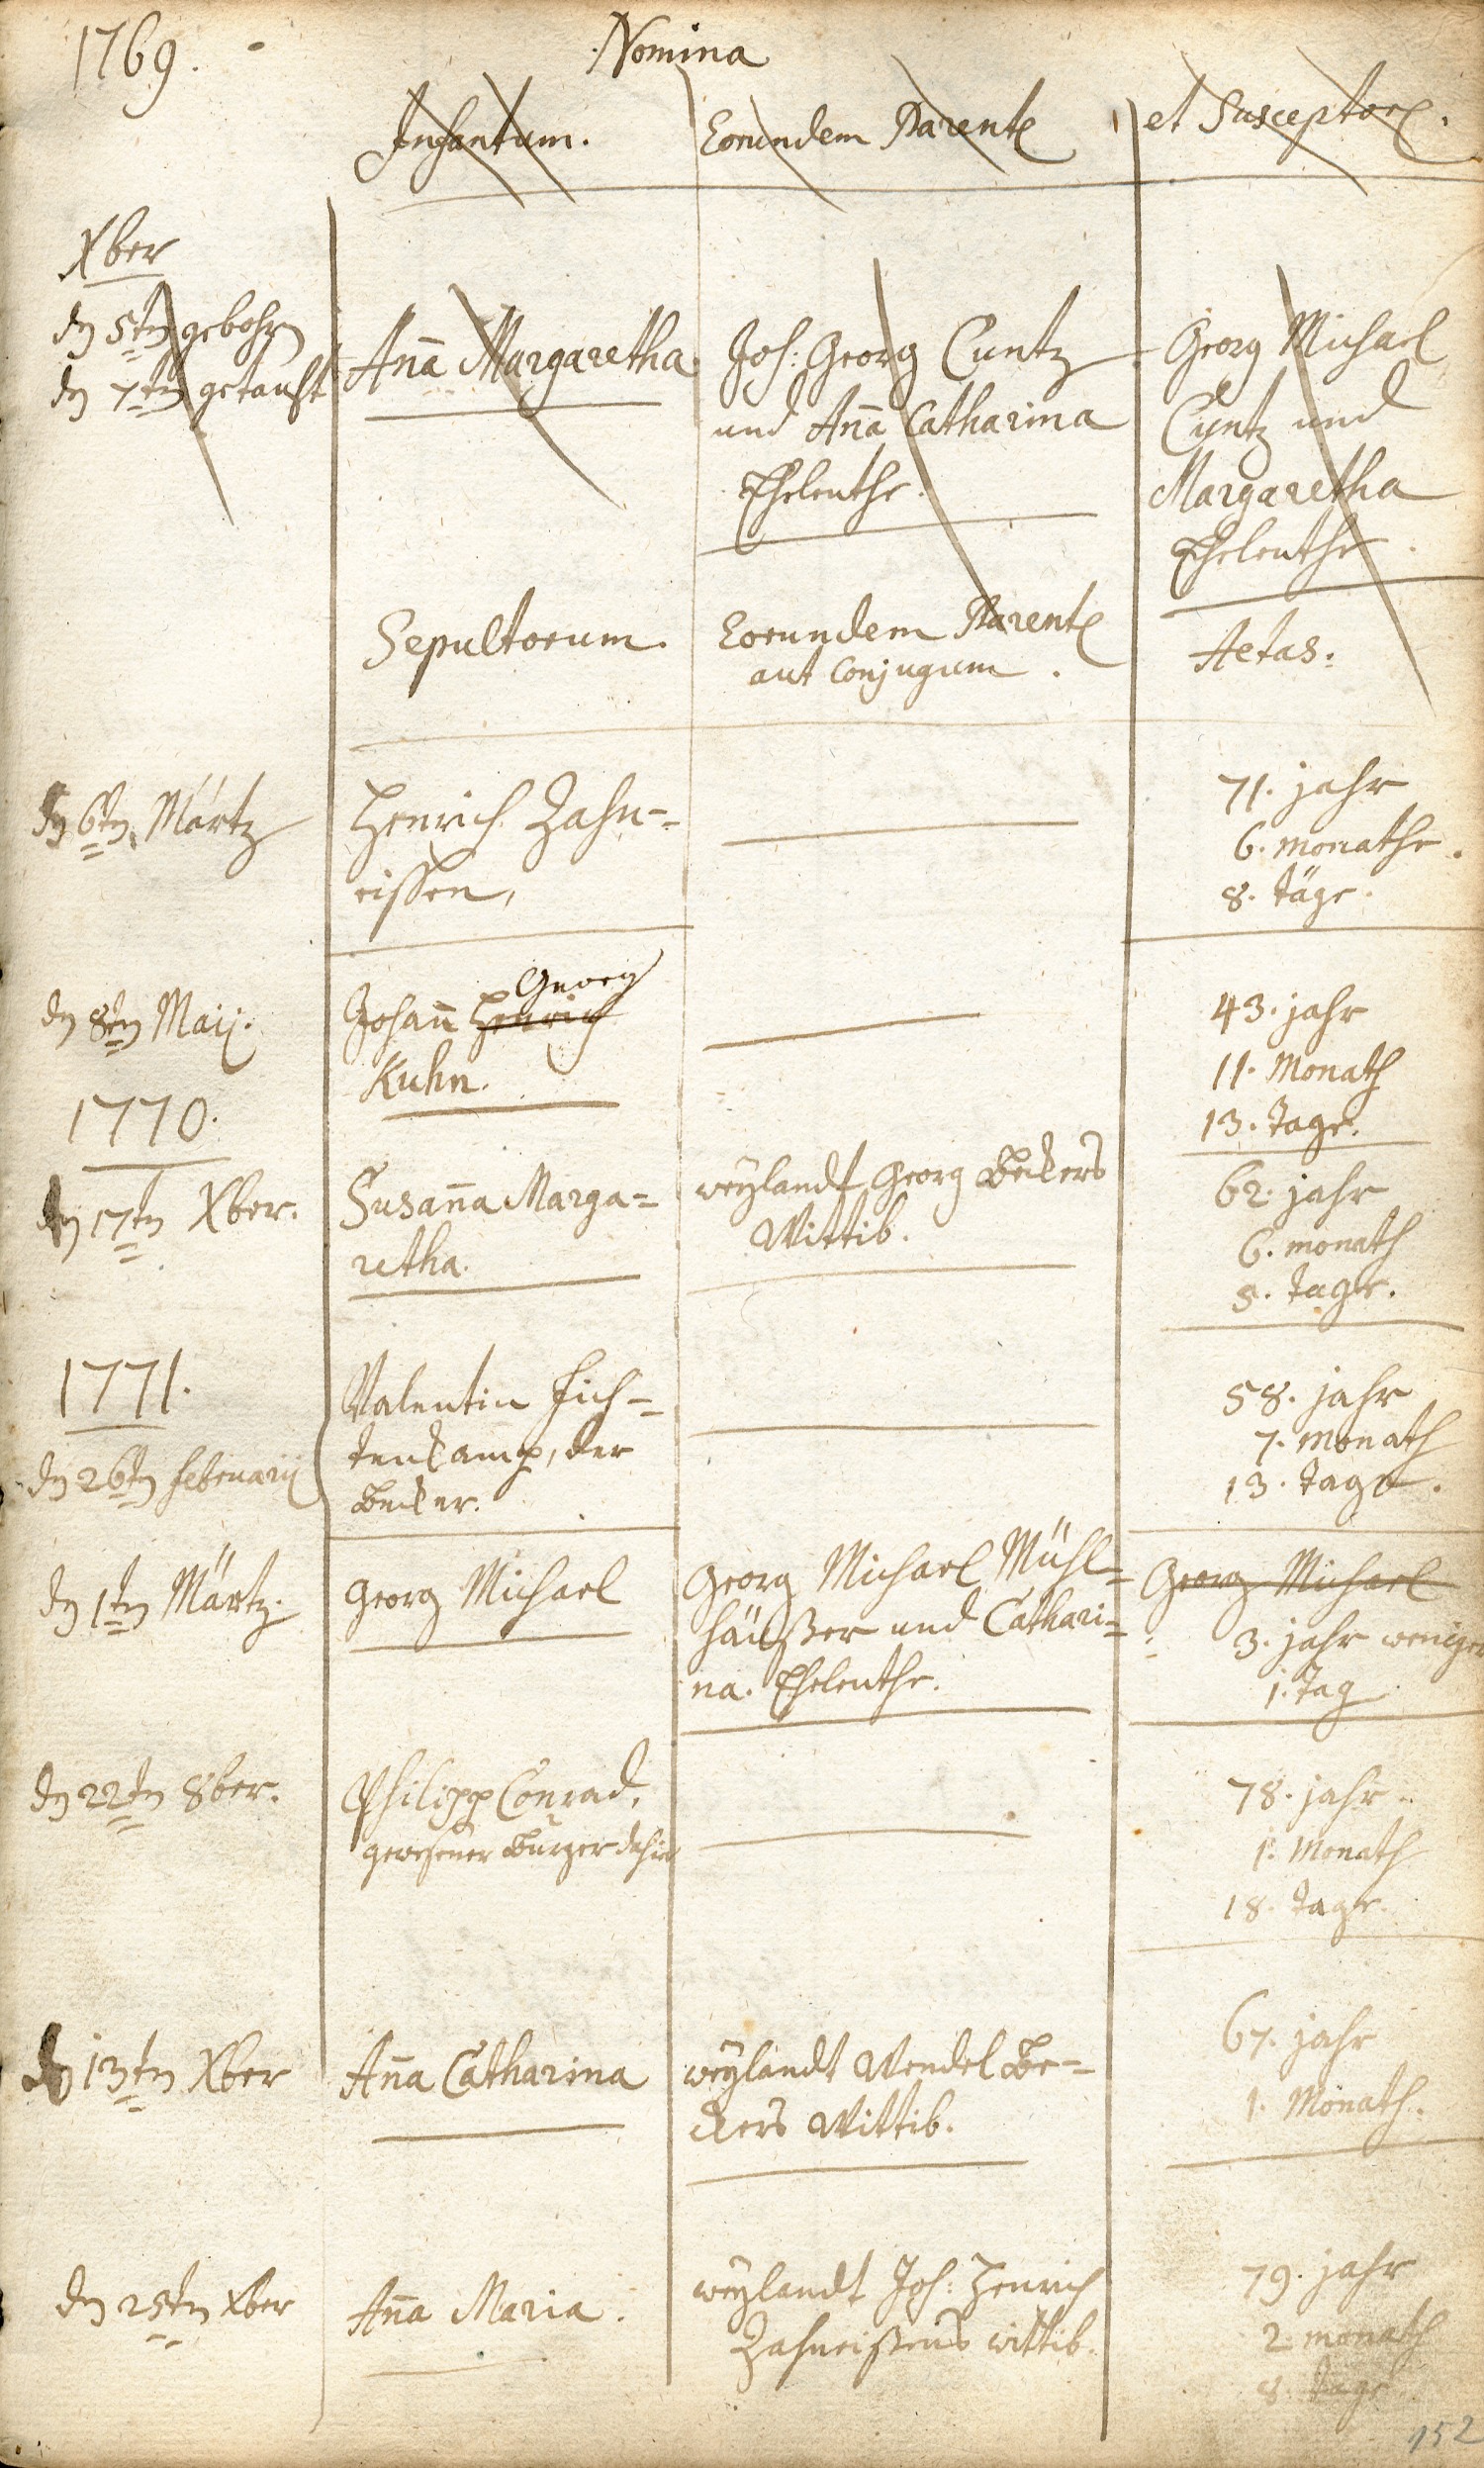 1769.
Nomina
Infantum.
Eorundem Parent
et Susceptor.
Xber
dn 5tn gebohrn
dn 7tn getauft
Aña Margaretha.
Joh: Georg Cuntz
und Aña Catharina
Eheleuthe.
Georg Michael
Cuntz und
Margaretha
Eheleuthe.
Sepultorum.
Eorundem Parent
aut Conjugum.
Aetas.
dn 6tn Märtz
Henrich Zahn=
eissen,
71. jahr
6. monathe.
8. täge.
dn 8tn Maij.
Georg
Johañ Henrich
Kuhn.
43. jahr
11. Monath
13. Tage.
1770.
dn 17tn Xber.
Susaña Marga=
retha.
weylandt Georg Beckers
Wittib.
62. jahr
6. monath
5. Tage.
1771.
dn 26tn Februarij
Valentin Fich=
tenkamp, der
Becker.
58. jahr
7. Monath
13. Tage.
dn 1tn Märtz.
Georg Michael
Georg Michael Mühl=
häußer und Cathari=
na. Eheleuthe.
Georg Michael
3. jahr weniger
1. Tag
dn 22tn 8ber.
Philipp Conrad,
gewesener Burger dahier
78. jahr
1. Monath
18. Tage.
dn 13tn Xber
Aña Catharina
weylandt Wendel Be=
ckers Wittib.
67. jahr
1. Monath.
dn 25tn Xber
Aña Maria.
weylandt Joh: Henrich
Zahneißens wittib.
79. jahr
2 monath
8. tage
152